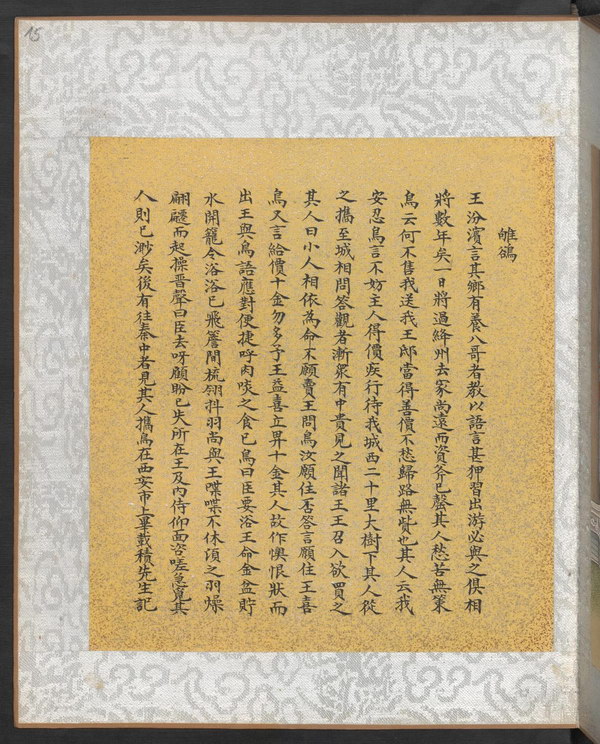 15
鴝鵒
王汾濱言其鄉有養八哥者教以語言甚狎習出游必與之俱相
將數年矣一日將過絳州去家尚遠而資斧已罄其人愁苦無策
鳥云何不售我送我王邸當得善價不愁歸路無貲也其人云我
安忍鳥言不妨主人得價疾行待我城西二十里大樹下其人從
之攜至城相問答觀者漸衆有中貴見之聞諸王王召入欲買之
其人曰小人相依為命不願賣王問鳥汝願住否答言願住王喜
鳥又言給價十金勿多予王益喜立畀十金其人故作懊恨狀而
出王與鳥語應對便捷呼肉啖之食已鳥曰臣要浴王命金盆貯
水開籠令浴浴已飛簷間梳翎抖羽尚與王喋喋不休須之羽燥
翩躚而起操晉聲曰臣去呀顧盼已失所在王及內侍仰面咨嗟急覓其
人則已渺矣後有往秦中者見其人攜鳥在西安市上畢載積先生記